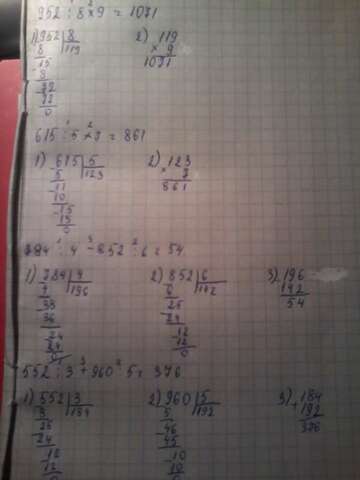 952 : 8 × 9 = 1071
1) 952 | 8 2) 119
8 119 × 9
15 1071
8
72
72
0
615 : 5 × 7 = 861
1) 615 | 5 2) 123
5 123 × 7
-11 861
10
-15
15
0
784 : 4 - 852 : 6 = 54
1) 784 | 4 2) 852 | 6 3) 196
4 196 6 142 142
38 25 54
36 24
24 -12
24 12
0 0
552 : 3 + 960 : 5 = 376
1) 552 | 3 2) 960 | 5 3) 184
3 184 5 192 + 192
25 -46 376
24 45
12 -10
12 10
0 0